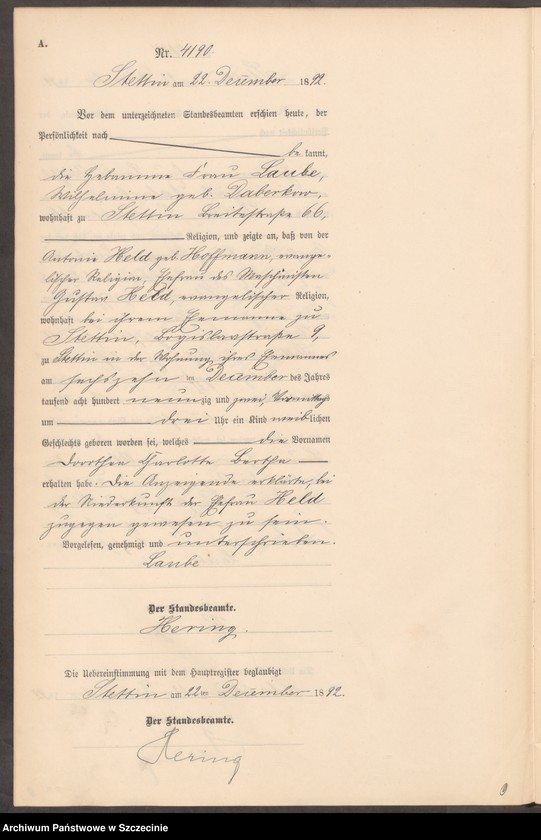 A.
Nr. 4190.
Stettin am 22. December 1892.
Vor dem unterzeichneten Standesbeamten erschien heute, der
Persönlichkeit nach
be kannt,
die Hebamme Frau Laube,
Wilhelmine geb. Daberkow,
wohnhaft zu Stettin Breitestraße 66,
Religion, und zeigte an, daß von der
Antonie Held geb. Hoffmann, evange-
lischer Religion, Ehefrau des Maschinisten
Gustav Held, evangelischer Religion,
wohnhaft bei ihrem Ehemanne zu
Stettin, Bogislavstraße 9,
zu Stettin in der Wohnung ihres Ehemannes
am sechszehn ten December des Jahres
tausend acht hundert neunzig und zwei, Vormittags
um drei Uhr ein Kind weiblichen
Geschlechts geboren worden sei, welches die Vornamen
Dorothea Charlotte Bertha
erhalten habe. Die Anzeigende erklärte, bei
der Niederkunft der Ehefrau Held
zugegen gewesen zu sein.
Vorgelesen, genehmigt und unterschrieben.
Laube
Der Standesbeamte.
Hering.
Die Uebereinstimmung mit dem Hauptregister beglaubigt
Stettin am 22ten December 1892.
Der Standesbeamte.
Hering
Archiwum Państwowe w Szczecinie